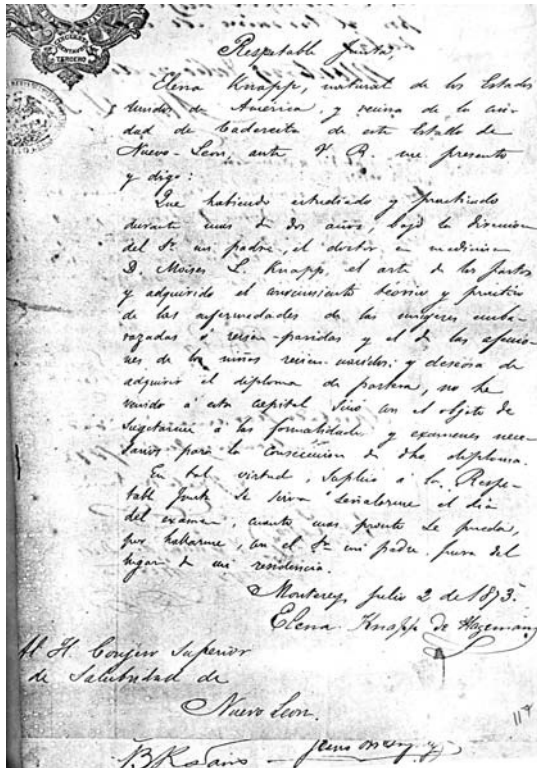 TERCERO
Respetable Junta,
Elena Knapp, natural de los Estados
Unidos de América, y vecina de la ciu-
dad de Cadereita de este Estado de
Nuevo-Leon, ante V. R. me presento
y digo:
Que habiendo estudiado y practicado
durante mas de dos años, bajo la direccion
del Sr. mi padre, el doctor en medicina
D. Moises L. Knapp, el arte de los partos
y adquirido el conocimiento teórico y practico
de las enfermedades de las mugeres emba-
razadas ó recien-paridas y el de las afeccio-
nes de los niños recien-nacidos; y deseosa de
adquirir el diploma de partera, no he
venido á esta capital sinó con el objeto de
sugetarme á las formalidades y examenes nece-
sarios para la consecucion de dho. diploma.
En tal virtud, suplico a la Respe-
table Junta se sirva señalarme el dia
del examen, cuanto mas pronto se pueda,
por hallarme, con el Sr. mi padre, fuera del
lugar de mi residencia.
Monterey, Julio 2 de 1873.
Elena Knapp de Hageman
Al H. Consejo Superior
de Salubridad de
Nuevo Leon.